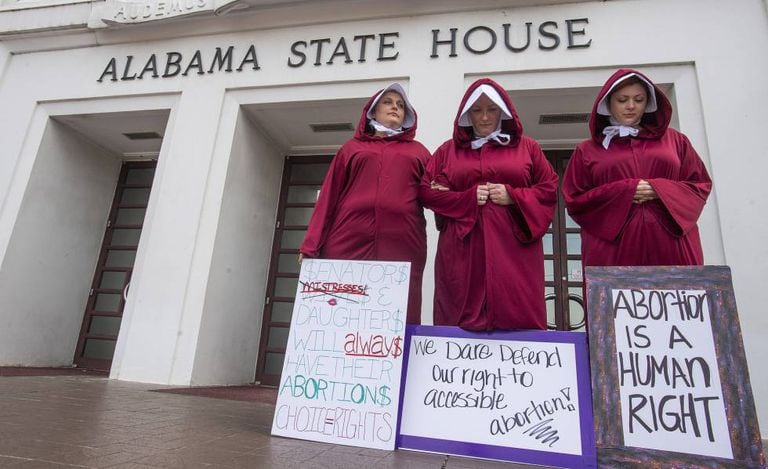 AUDEMUS
ALABAMA STATE HOUSE
$ENATOR$
MISTRESSES
&
DAUGHTER$
WILL always
HAVE THEIR
ABORTION$
CHOICE=RIGHTS
We Dare Defend
our right to
accessible
abortion!
ABORTION
IS A
HUMAN
RIGHT